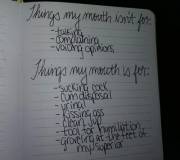 Things my mouth isn't for:
- talking
- complaining
- voicing opinions
Things my mouth is for:
- sucking cock
- cum disposal
- urinal
- kissing ass
- clean up
- tool for humiliation
- groveling at the feet of
my superior